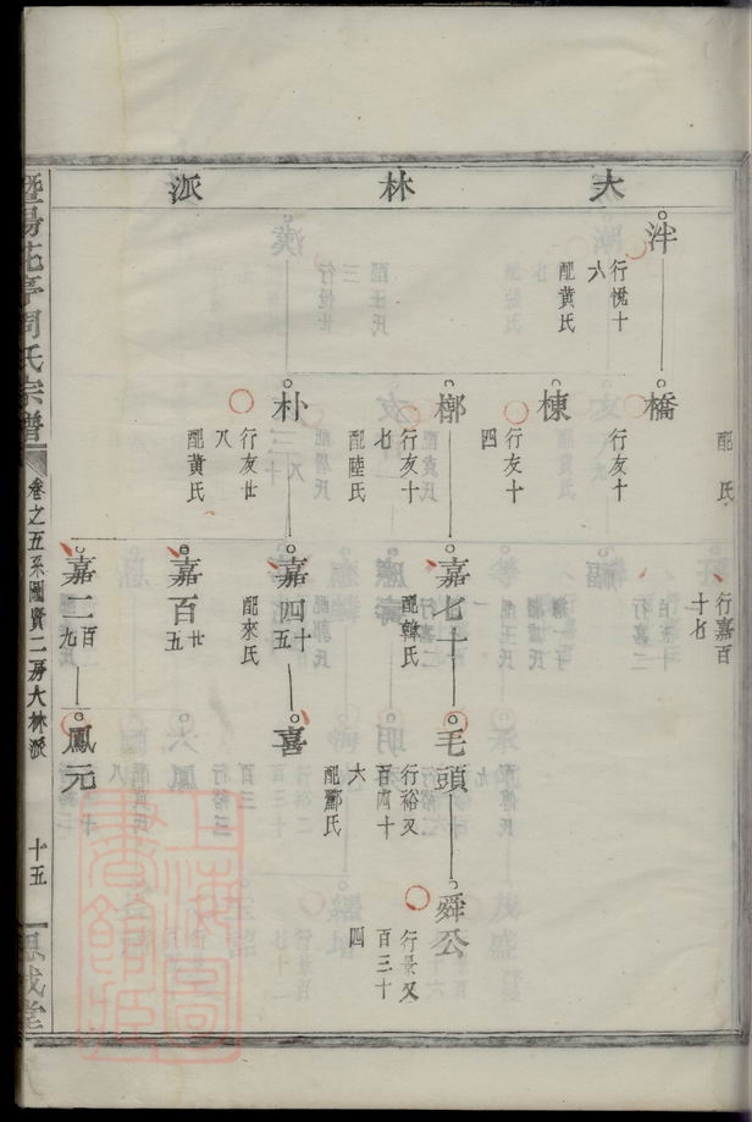 大林派
泮
行悅十
六
配黃氏
橋
行友十
棟
行友十
四
槨
行友十
七
配陸氏
朴
行友廿
八
配黃氏
配
氏
行嘉百
十七
嘉七十
配韓氏
嘉四十
五
配來氏
嘉百廿
五
嘉二百
九
毛頭
行裕又
百四十
六
配酈氏
喜
鳳元
舜公
行景又
百三十
四
暨陽花亭周氏宗譜
卷之五系圖賢二房大林派
十五
思成堂
上海圖書館藏